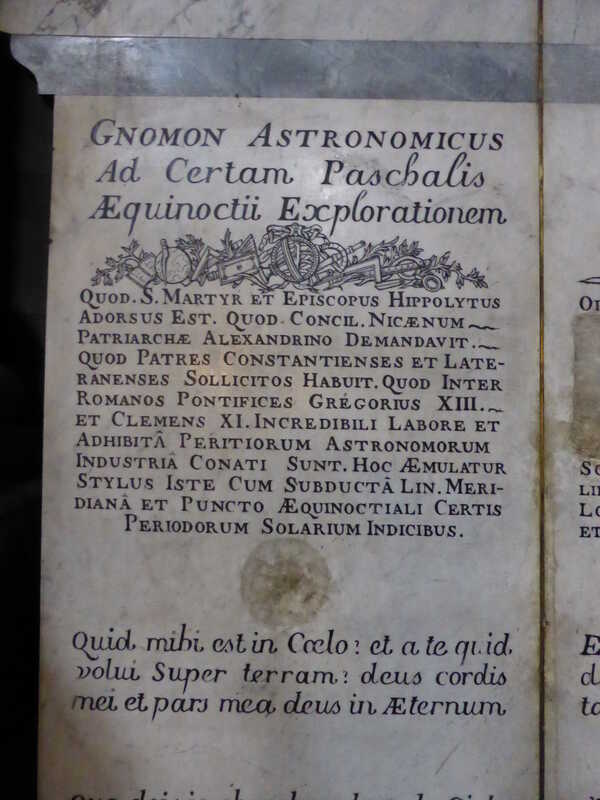 GNOMON ASTRONOMICUS
Ad Certam Paschalis
Æquinoctii Explorationem
QUOD. S. MARTYR ET EPISCOPUS HIPPOLYTUS
ADORSUS EST. QUOD CONCIL. NICÆNUM
PATRIARCHÆ ALEXANDRINO DEMANDAVIT.
QUOD PATRES CONSTANTIENSES ET LATE-
RANENSES SOLLICITOS HABUIT. QUOD INTER
ROMANOS PONTIFICES GRÉGORIUS XIII.
ET CLEMENS XI. INCREDIBILI LABORE ET
ADHIBITÂ PERITIORUM ASTRONOMORUM
INDUSTRIÂ CONATI SUNT. HOC ÆMULATUR
STYLUS ISTE CUM SUBDUCTÂ LIN. MERI-
DIANÂ ET PUNCTO ÆQUINOCTIALI CERTIS
PERIODORUM SOLARIUM INDICIBUS.
Quid mihi est in Cœlo? et a te quid
volui Super terram? deus cordis
mei et pars mea deus in Æternum